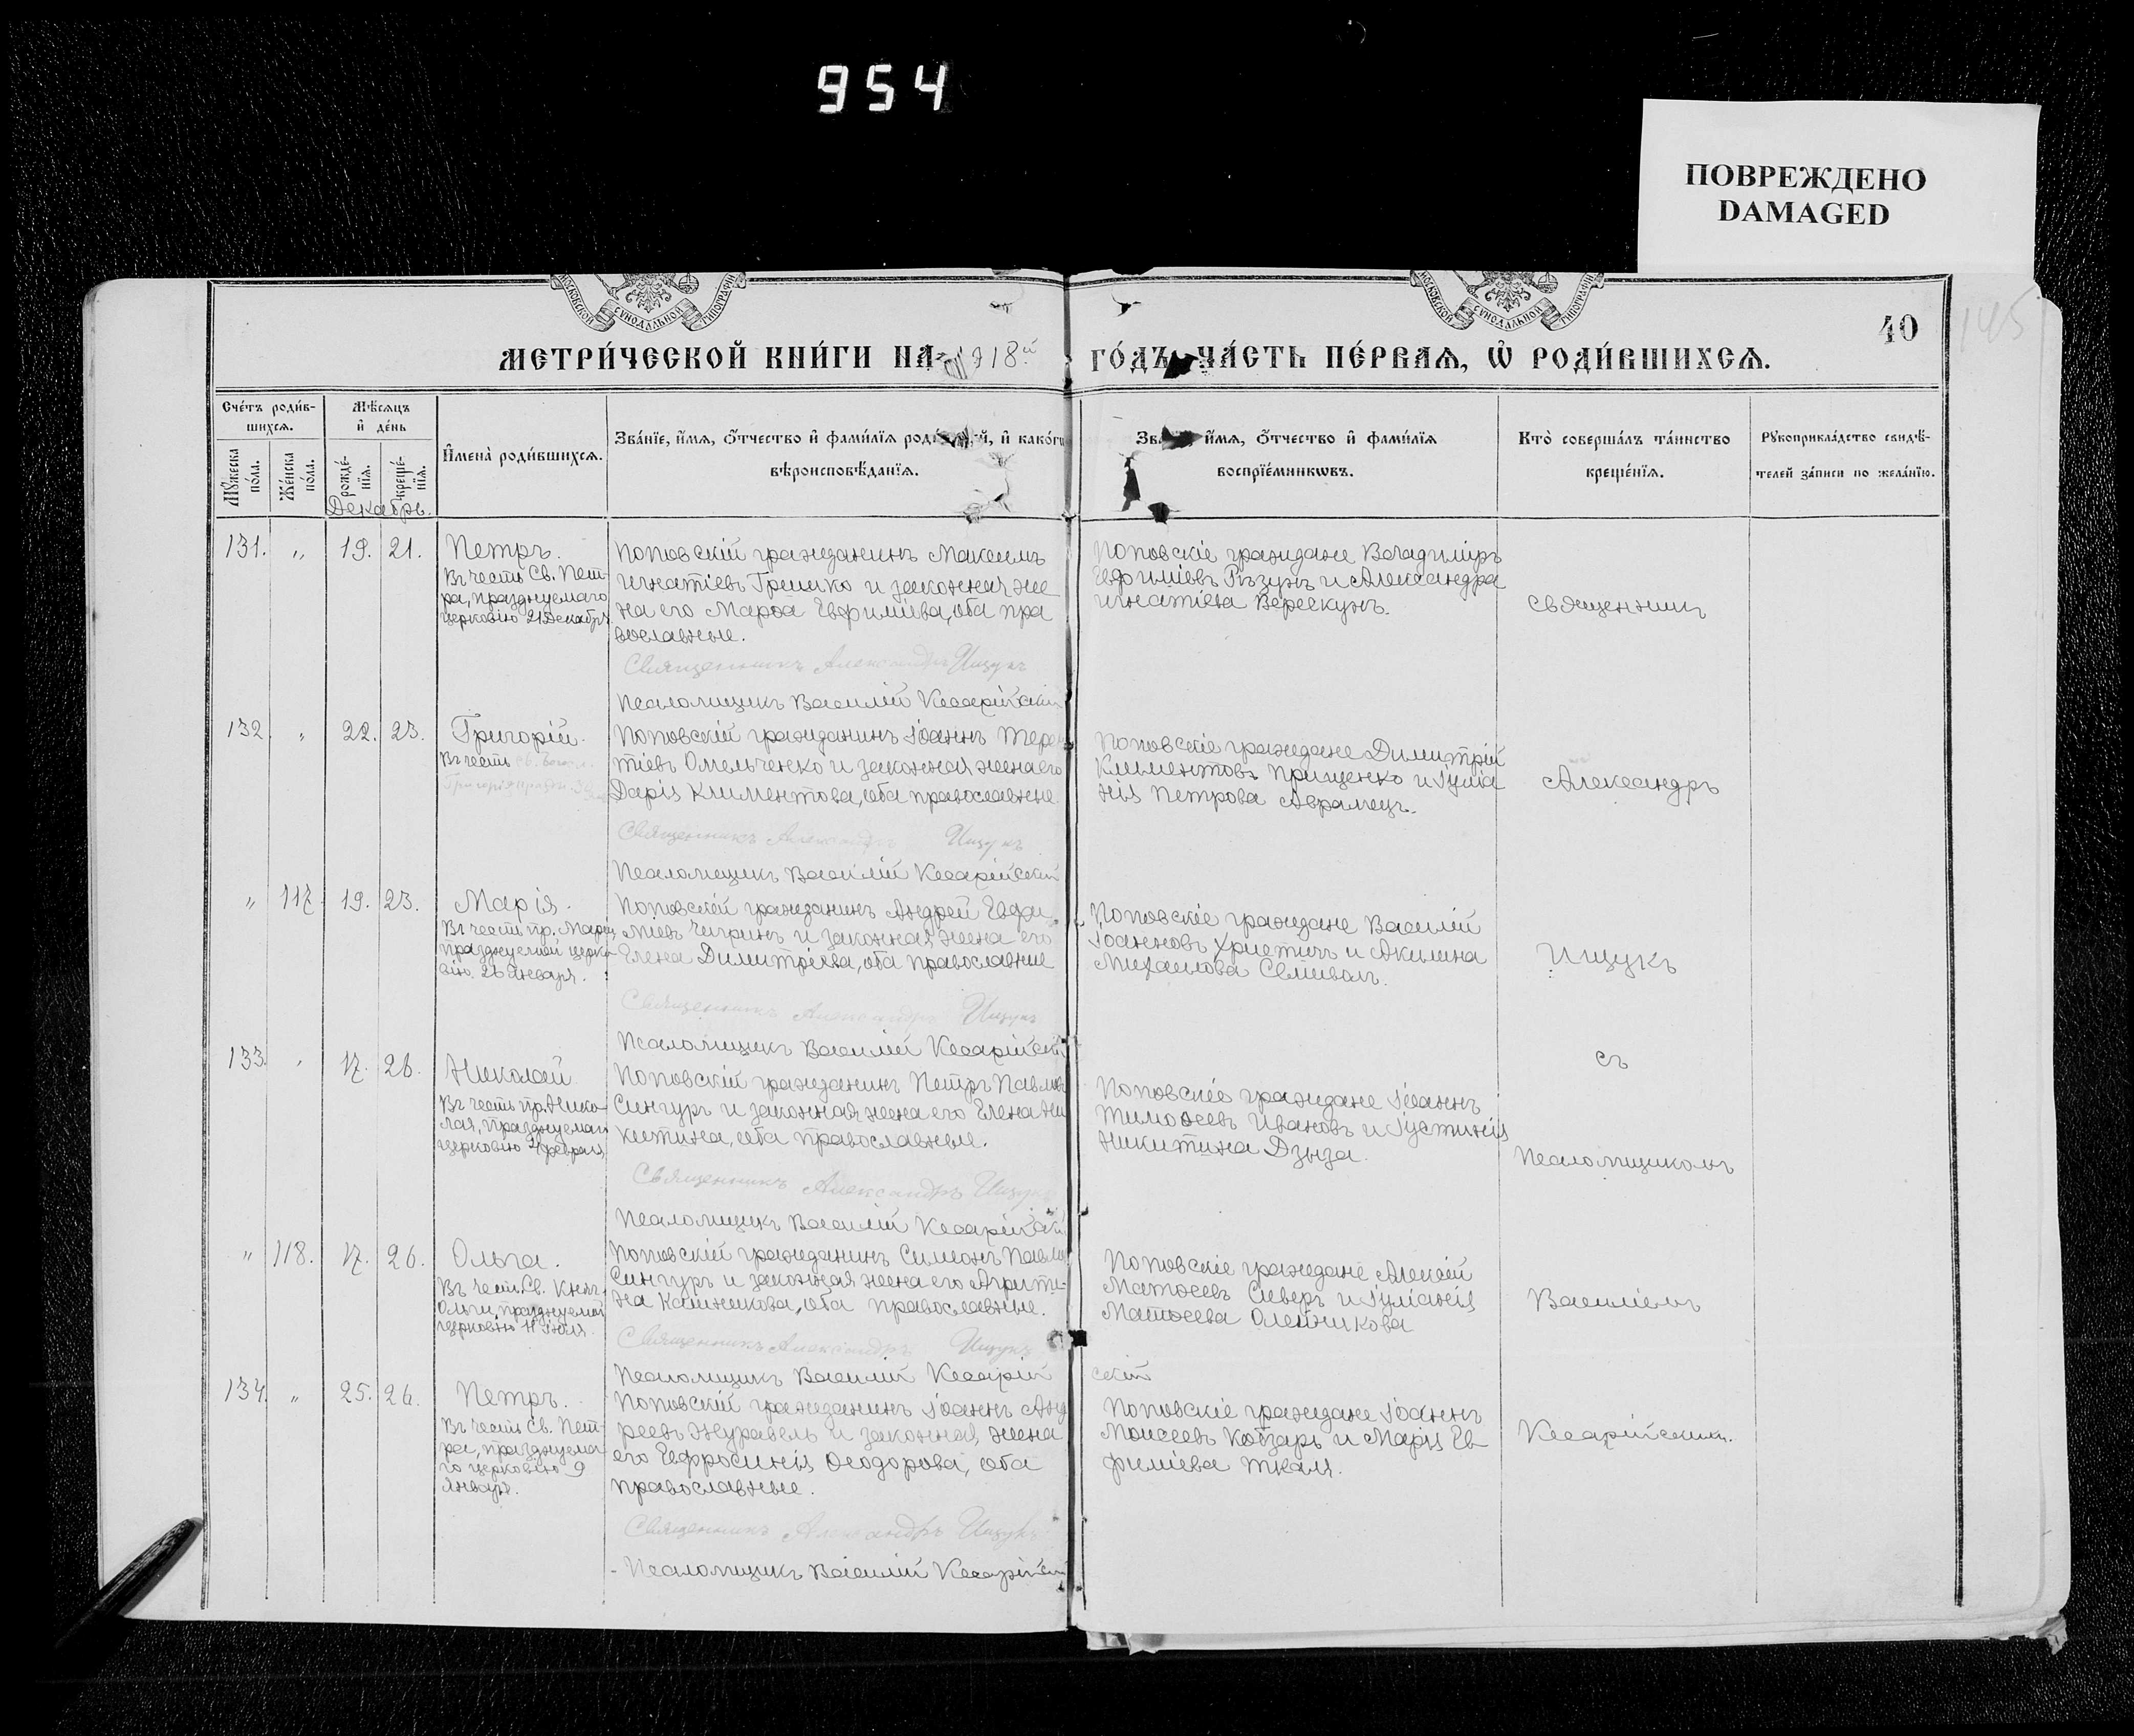 954
ПОВРЕЖДЕНО
DAMAGED
40
145
МЕТРИ́ЧЕСКОЙ КНИ́ГИ НА 1918й ГО́ДЪ ЧА́СТЬ ПЕ́РВАЯ, Ѿ РОДИ́ВШИХСЯ.
Сче́тъ роди́в-
шихся.
Мѣ́сяцъ
и҆ де́нь
Мꙋ́жеска
по́ла.
Же́нска
по́ла.
рожде́-
нїя.
креще́-
нїя.
Декабрь.
И҆мена̀ роди́вшихся.
Зва́нїе, и҆́мя, ѻ҆́тчество и҆ фамилїя
вѣроисповѣ́данїя.
и҆́мя, ѻ҆́тчество и҆ фами́лїя
воспрїе́мникѡвъ.
Кто̀ соверша́лъ та́инство
креще́нїя.
Рꙋкоприкла́дство свидѣ́-
телей за́писи по жела́нїю.
131. " 19. 21. Петръ.
Въ честь Св. Пет-
ра, празднуемаго
церковію 21 Декабря
Поповскій гражданинъ Максимъ
Игнатіевъ Гришко и законная же
на его Марѳа Евфимова, оба пра
вославные.
Священникъ Александръ Ищукъ
Псаломщикъ Василій Кесарійскій
Поповскіе граждане Владиміръ
Евфиміевъ Рѣзунъ и Александра
Игнатіева Верескунъ.
Священник
132. " 22. 23. Григорій.
Въ честь
Поповскій гражданинъ Іоаннъ Терен
тіевъ Омельченко и законная жена его
Дарія Климентова, оба православные.
Священникъ Александръ Ищукъ
Псаломщикъ Василій Кесарійскій
Поповскіе граждане Димитрій
Климентовъ Прищенко и Іуліа
нія Петрова Аврамецъ.
Александръ
" 117. 19. 23. Марія.
Въ честь пр. Маріи,
празднуемой церко-
вію 26 Января.
Поповскій гражданинъ Андрей Евфи
міевъ Чигринъ и законная жена его
Елена Димитріева, оба православные
Священникъ Александръ Ищукъ
Псаломщикъ Василій Кесарійскій
Поповскіе граждане Василій
Іоанновъ Христичъ и Акилина
Михаилова Семиволъ.
Ищукъ
133. " 17. 26. Николай
Въ честь пр. Нико-
лая, празднуемаго
церковію 4 февраля
Поповскій гражданинъ Петръ Павловъ
Сингуръ и законная жена его Елена Ни
китина, оба православные.
Священникъ Александръ Ищукъ
Псаломщикъ Василій Кесарійскій
Поповскіе граждане Іоаннъ
Тимоѳеевъ Ивановъ и Іустинія
Никитина Дзыза.
съ
Псаломщикомъ
" 118. 17. 26. Ольга.
Въ честь Св. Княг.
Ольги, празднуемой
церковію 11 Іюля.
Поповскій гражданинъ Симонъ Павлов
Сингуръ и законная жена его Агрипи-
на Калиникова, оба православные.
Священникъ Александръ Ищукъ
Псаломщикъ Василій Кесарійскій
Поповскіе граждане Алексій
Матѳеевъ Сиверъ и Іуліанія
Матѳеева Олейникова
Василіемъ
134. " 25. 26. Петръ.
Въ честь Св. Пет-
ра, празднуема-
го церковію 9
Января.
Поповскій гражданинъ Іоаннъ Анд
реевъ Журавель и законная жена
его Евфросинія Ѳеодорова, оба
православные.
Священникъ Александръ Ищукъ
Псаломщикъ Василій Кесарійскій
Поповскіе граждане Іоаннъ
Моисеевъ Кобзарь и Марія Ев
фиміева Ткаля.
Кесарійскимъ.